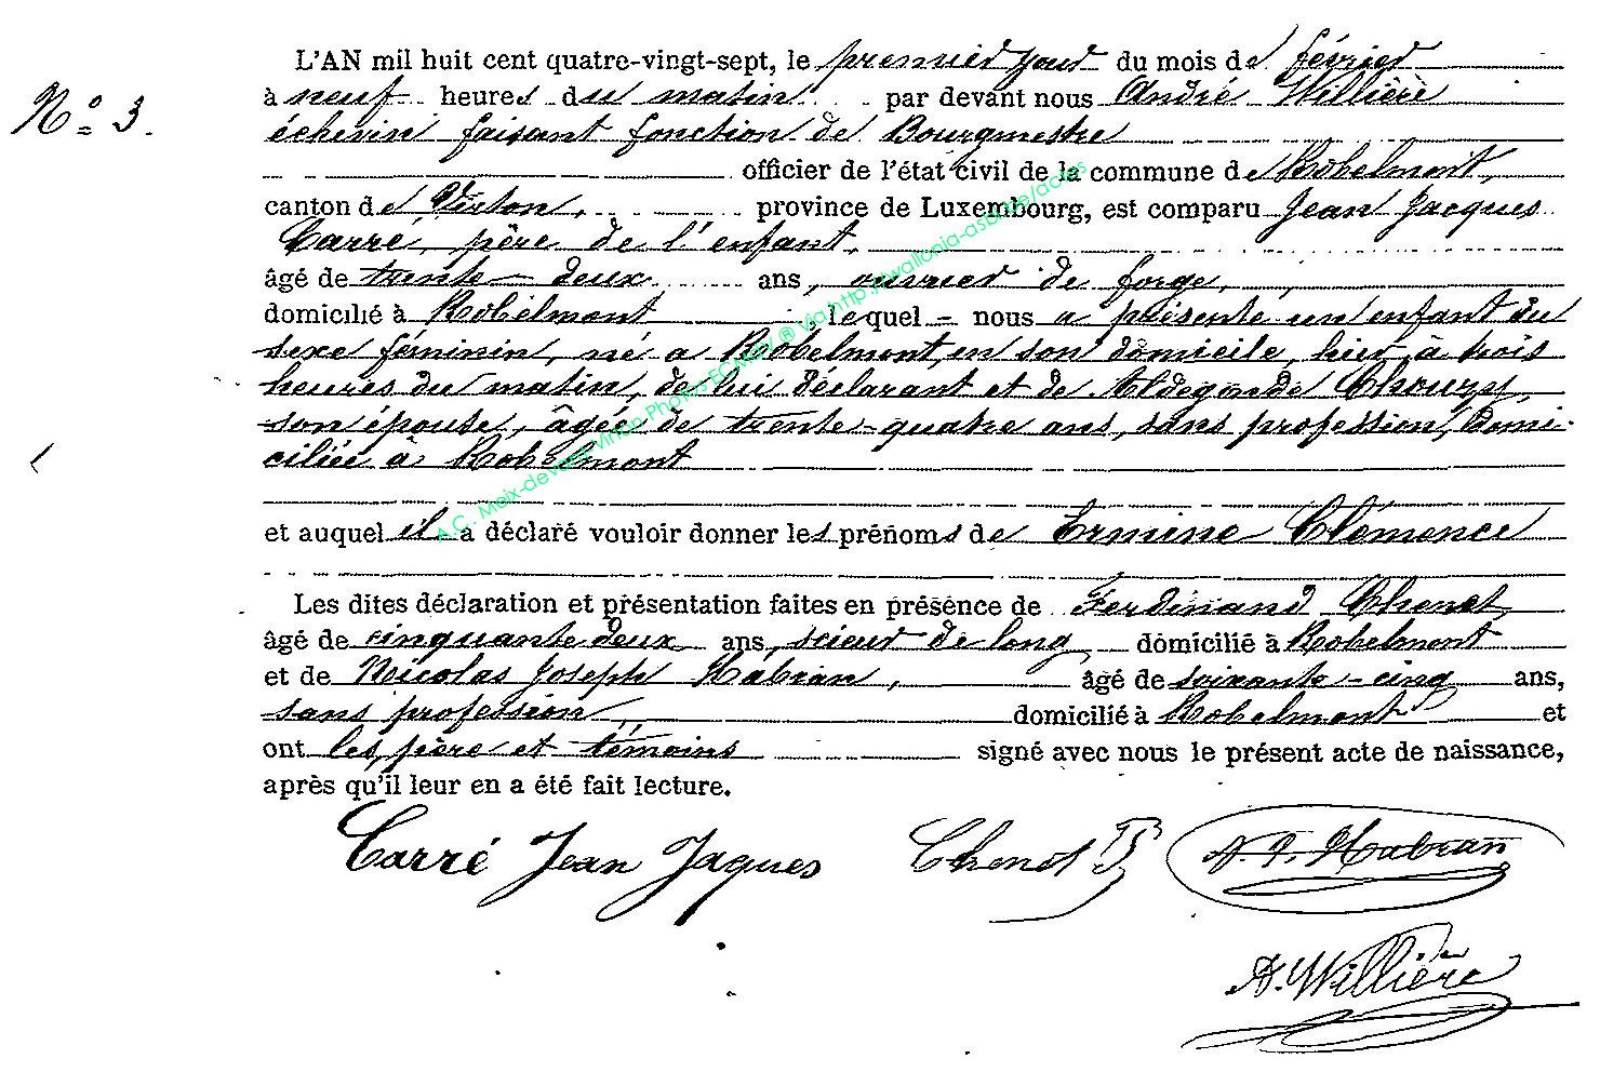 L'AN mil huit cent quatre-vingt-sept, le premier jour du mois de février
N° 3.
à neuf heures du matin par devant nous André Willière
échevin faisant fonction de Bourgmestre
officier de l'état civil de la commune de Robelmont,
canton de Virton, province de Luxembourg, est comparu Jean Jacques
Carré, père de l'enfant,
âgé de trente-deux ans, ouvrier de forge,
domicilié à Robelmont, lequel nous a présenté un enfant du
sexe féminin, né a Robelmont, en son domicile, hier, à trois
heures du matin, de lui déclarant et de Aldegonde
son épouse, âgée de trente-quatre ans, sans profession, domi-
ciliée à Robelmont
et auquel il a déclaré vouloir donner les prénoms de Ermine Clémence
Les dites déclaration et présentation faites en présence de Ferdinand Chenot
âgé de cinquante deux ans, scieur de long, domicilié à Robelmont
et de Nicolas Joseph Habran, âgé de soixante-cinq ans,
sans profession, domicilié à Robelmont et
ont les père et témoins signé avec nous le présent acte de naissance,
après qu'il leur en a été fait lecture.
Carré Jean Jaques Chenot F N. J. Habran
A. Willière
A.C. Meix-devant-Virton Photos ECMDV ® via http://wallonia-asbl.be/actes